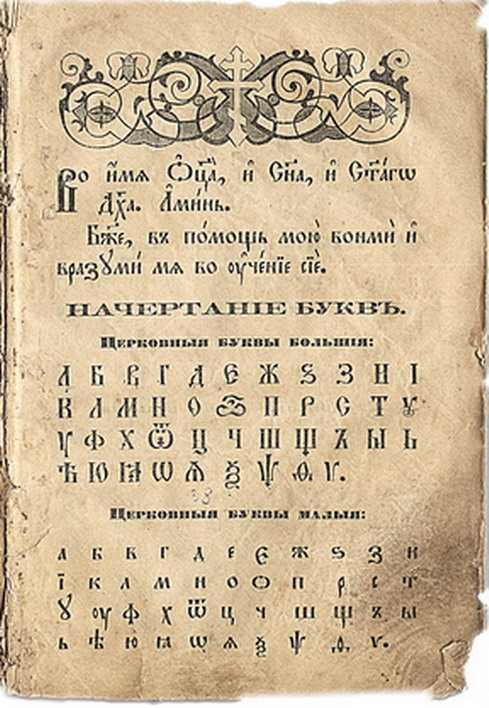 Во и҆́мѧ Ѻ҆ц҃а̀, и҆ Сн҃а, и҆ Ст҃а́гѡ
Дх҃а. А҆ми́нь.
Бж҃е, въ по́мощь мою̀ вонмѝ и҆
вразꙋмѝ мѧ во ᲂу҆че́нїе сїѐ.
НАЧЕРТАНІЕ БУКВЪ.
Церковныя буквы большія:
А Б В Г Д Е Ж Ѕ З И І
К Л М Н О Ѻ П Р С Т Ꙋ
У Ф Х Ѿ Ц Ч Ш Щ Ъ Ы Ь
Ѣ Ю Ꙗ Ѡ Ѧ Ѯ Ѱ Ѳ Ѵ.
Церковныя буквы малыя:
а б в г д е є ж ѕ з и
ї к л м н о ѻ п р с т
ꙋ ᲂу ф х ѿ ц ч ш щ ъ ы
ь ѣ ю ꙗ ѡ ѧ ѯ ѱ ѳ ѵ.